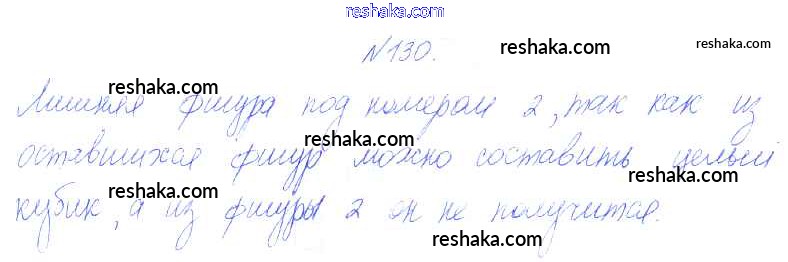 reshaka.com
№130.
reshaka.com
reshaka.com
reshaka.com
Лишняя фигура под номером 2, так как из
reshaka.com
reshaka.com
оставшихся фигур можно составить целый
reshaka.com
reshaka.com
кубик, а из фигуры 2 он не получится.
reshaka.com
reshaka.com